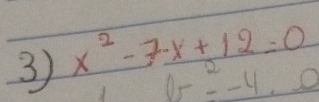 3) x² - 7·x + 12 = 0
b² - 4 · 0